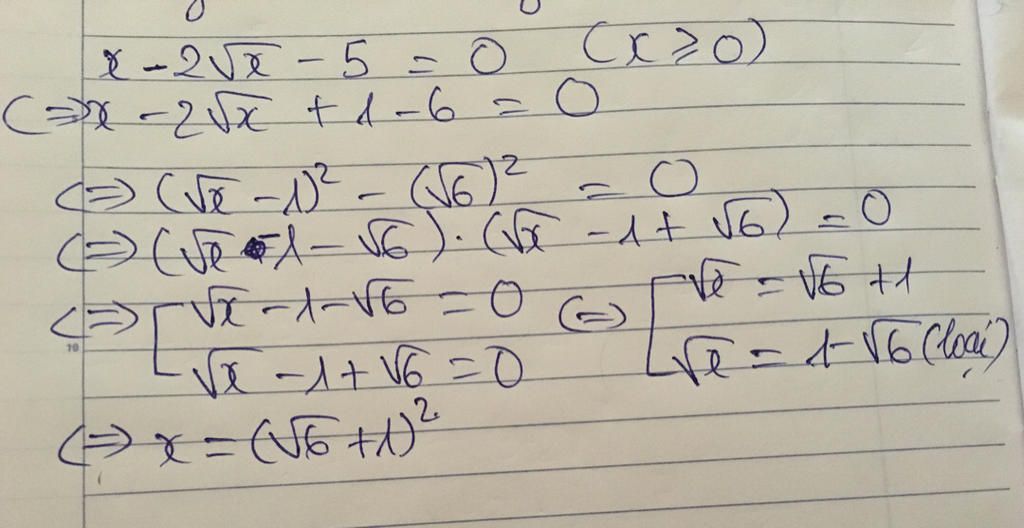 x - 2√x - 5 = 0 (x ⩾ 0)
<=> x - 2√x + 1 - 6 = 0
<=> (√x - 1)² - (√6)² = 0
<=> (√x - 1 - √6) . (√x - 1 + √6) = 0
<=> [ √x - 1 - √6 = 0 <=> [ √x = √6 + 1
√x - 1 + √6 = 0 √x = 1 - √6 (loại)
<=> x = (√6 + 1)²